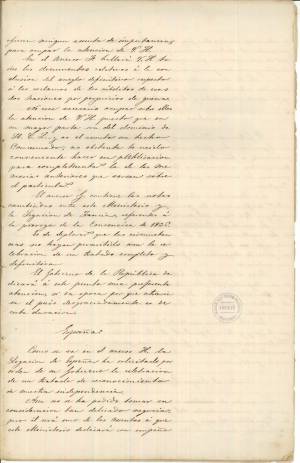 ofrecen ningun asunto de importancia
para ocupar la atencion de V.H.
En el Anexo H hallará V.H. to-
dos los documentos relativos á la con-
clusion del arreglo definitivo respecto
á los reclamos de los súbditos de va-
rias naciones por perjuicios de guerra.
No creo necesario ocupar sobre ellos
la atencion de V.H. puesto que son
en su mayor parte del dominio de
V.H. y en el asunto un hecho
Consumado; no obstante he creido
conveniente hacer su publicacion
para complementar la de las Me-
morias anteriores que versan sobre
el particular.
El anexo Y contiene las notas
cambiadas entre este Ministerio y
la Legacion de Francia, referentes á
la próroga de la Convencion de 1836.
Es de deplorar que las circunstan-
cias no hayan permitido aun la ce-
lebracion de un tratado completo y
definitivo.
El Gobierno de la República de-
dicará á este punto una preferente
atencion, á la época por que atraviesa
el pais desgraciadamente es de
corta duracion.
España
Como se ve en el anexo H, la
Legacion de España ha solicitado por
orden de su Gobierno la celebracion
de un tratado de reconocimiento
de nuestra independencia.
Aun no se ha podido tomar en
consideracion tan delicada negociacion,
pero él será uno de los asuntos á que
este Ministerio dedicará con empeño